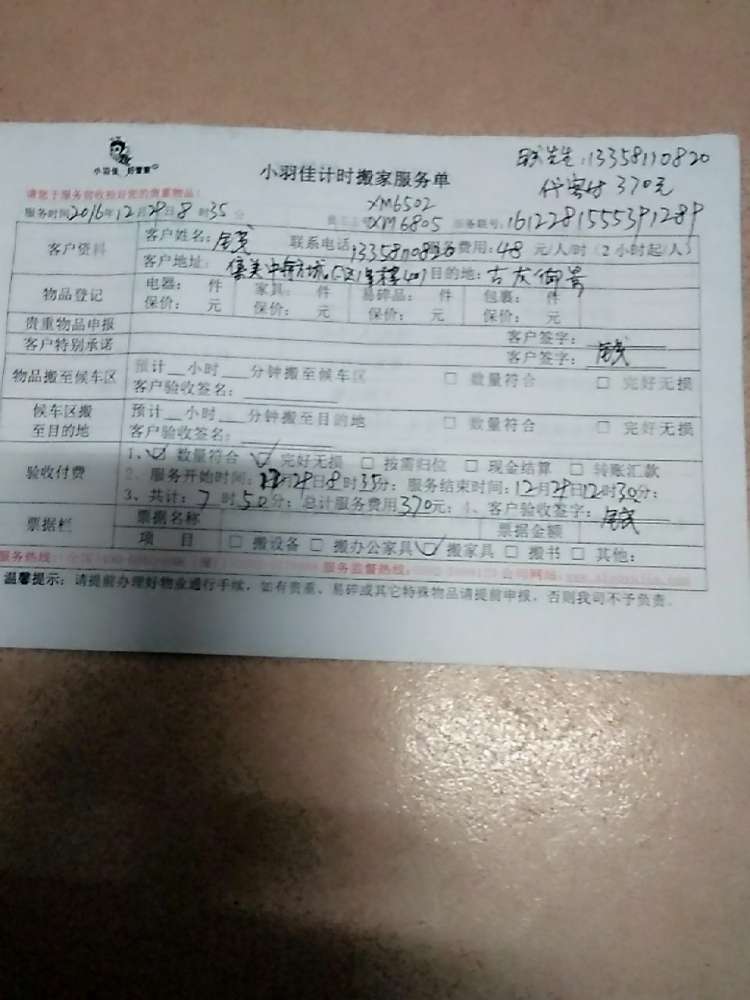 小羽佳 好管家
小羽佳计时搬家服务单
先生:13358110820
代客付 370元
请您于服务前收拾好您的贵重物品!
XM6502
服务时间2016年12月29日8时35分
员工工号XM6805
客户资料
客户姓名: 联系电话:13358110820 服务费用:48 元/人/时(2小时起/人)
客户地址: 目的地:
物品登记
电器: 件 家具: 件 易碎品: 件 包裹: 件
保价: 元 保价: 元 保价: 元 保价: 元
贵重物品申报 客户签字:
客户特别承诺 客户签字:
物品搬至候车区
预计__小时__分钟搬至候车区 □ 数量符合 □ 完好无损
客户验收签名:
候车区搬至目的地
预计__小时__分钟搬至目的地 □ 数量符合 □ 完好无损
客户验收签名:
验收付费
1、☑ 数量符合 ☑ 完好无损 □ 按需归位 □ 现金结算 □ 转账汇款
2、服务开始时间:12月29日8时35分;服务结束时间:12月29日12时30分;
3、共计:7时50分;总计服务费用370元;4、客户验收签字:
票据栏
票据名称 票据金额
项 目 □ 搬设备 □ 搬办公家具 ☑ 搬家具 □ 搬书 □ 其他:
服务热线: 服务监督热线: 公司网站:
温馨提示:请提前办理好物业通行手续,如有贵重、易碎或其它特殊物品请提前申报,否则我司不予负责。